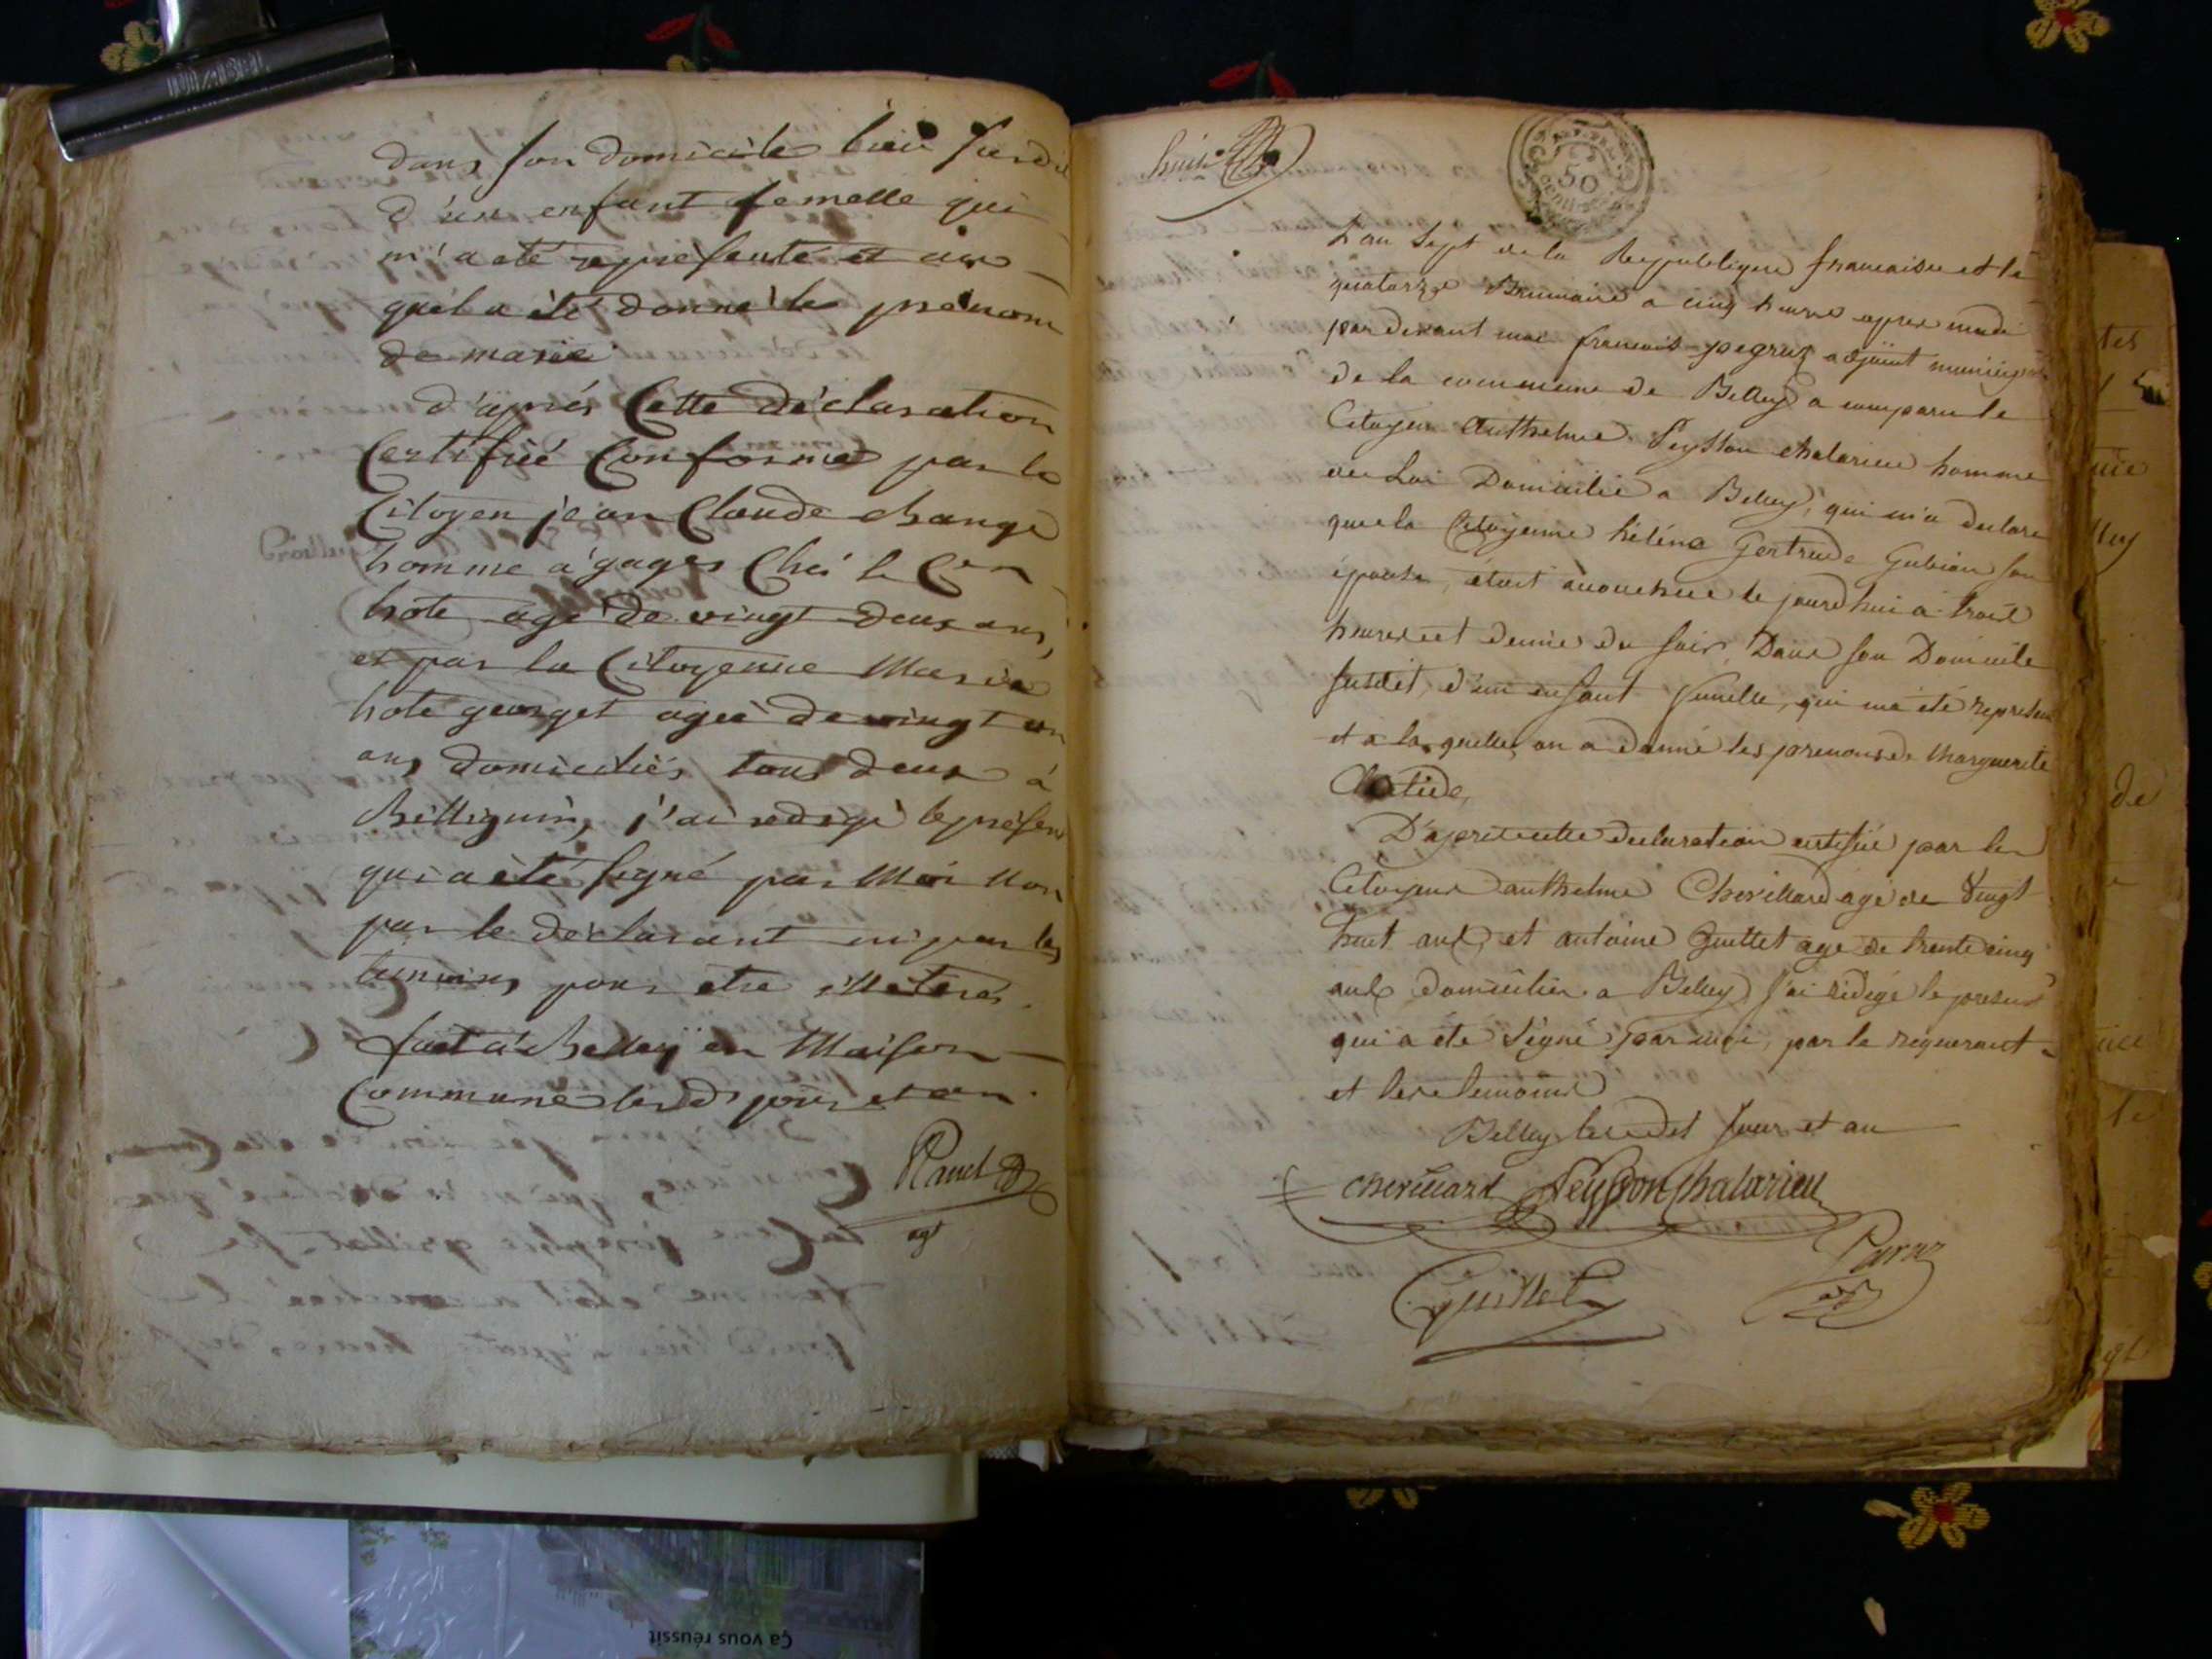 dans son domicile lieu susdit
d'un enfant femelle qui
m'a eté représenté et au
quel a été donné le prénom
de marie
d'après Cette déclaration
Certifiée Conforme par le
Citoyen jean Claude change
homme à gages Chés le Cen
hote agé de vingt deux ans,
et par la Citoyenne Marie
hote georget ageé de vingt un
ans domiciliés tous deux à
Billignin, j'ai redigé le présent
qui a été signé par Moi Non
par le declarant ni par les
temoins pour etre illeterés.
fait à Belley en Maison
Commune lesd. jour et an.
agt
huit
L'an Sept de la Republique francaise et le
quatorze Brumaire a cinq heures apres midi
par devant moi francois pegruz adjoint municipal
de la commune de Belley a comparu le
Citoyen Anthelme Peysson chalarieu homme
de Loi Domicilié a Belley, qui m'a declaré
que la Citoyenne héléne Gertrude Gubian son
épouse, étoit accouchee le jourdhui a trois
heures et demie du soir Dans son Domicile
susdit, d'un enfant femelle, qui ma été represen
et a la quelle, on a donné les prenoms de Marguerite
Clotilde,
D'apres cette declaration certifiée par les
Citoyens anthelme Chevillard agé de Vingt
huit ans, et antoine Guillet age de trente cinq
ans domiciliés a Belley j'ai rédigé le present
qui a été Signé par moi, par le requerant
et les temoins
Belley lesdit Jour et an
Chevillard Peysson Chalarieu
Guillet
Ça vous réussit
50